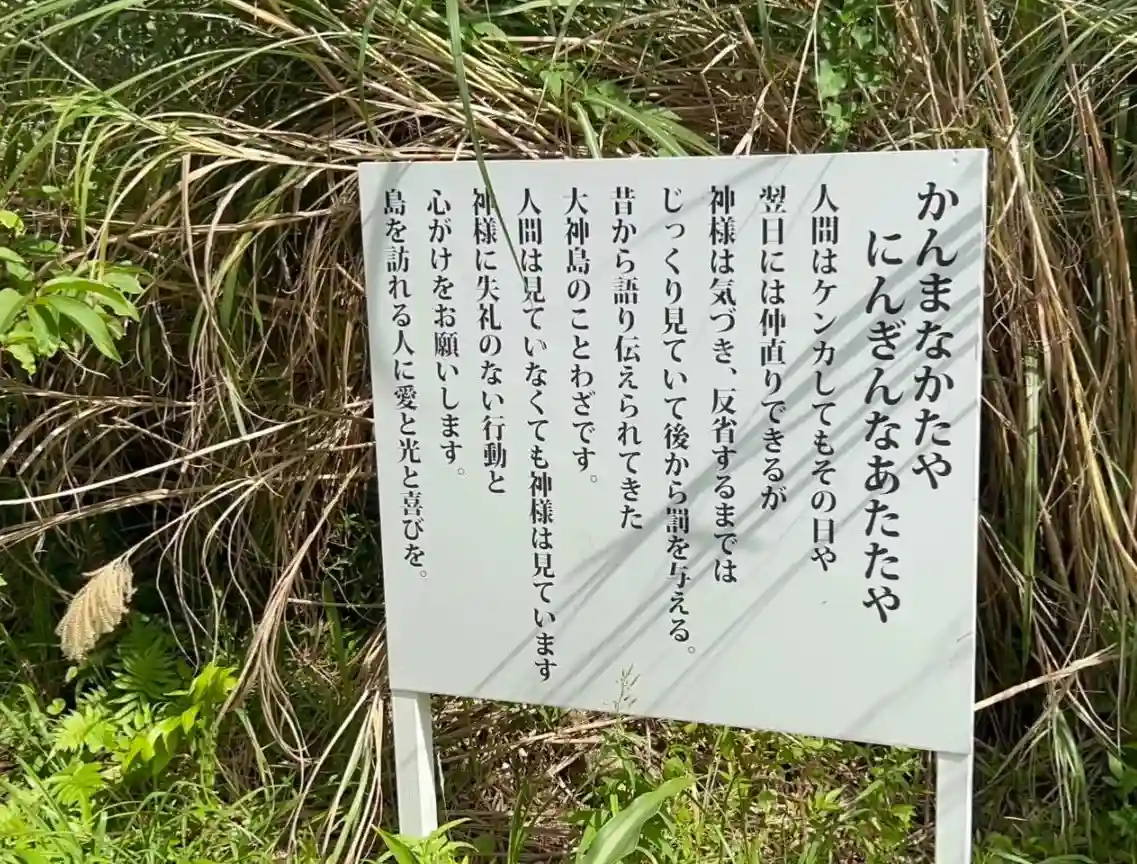 かんまなかたや
にんぎんなあたたや
人間はケンカしてもその日や
翌日には仲直りできるが
神様は気づき、反省するまでは
じっくり見ていて後から罰を与える。
昔から語り伝えられてきた
大神島のことわざです。
人間は見ていなくても神様は見ています
神様に失礼のない行動と
心がけをお願いします。
島を訪れる人に愛と光と喜びを。